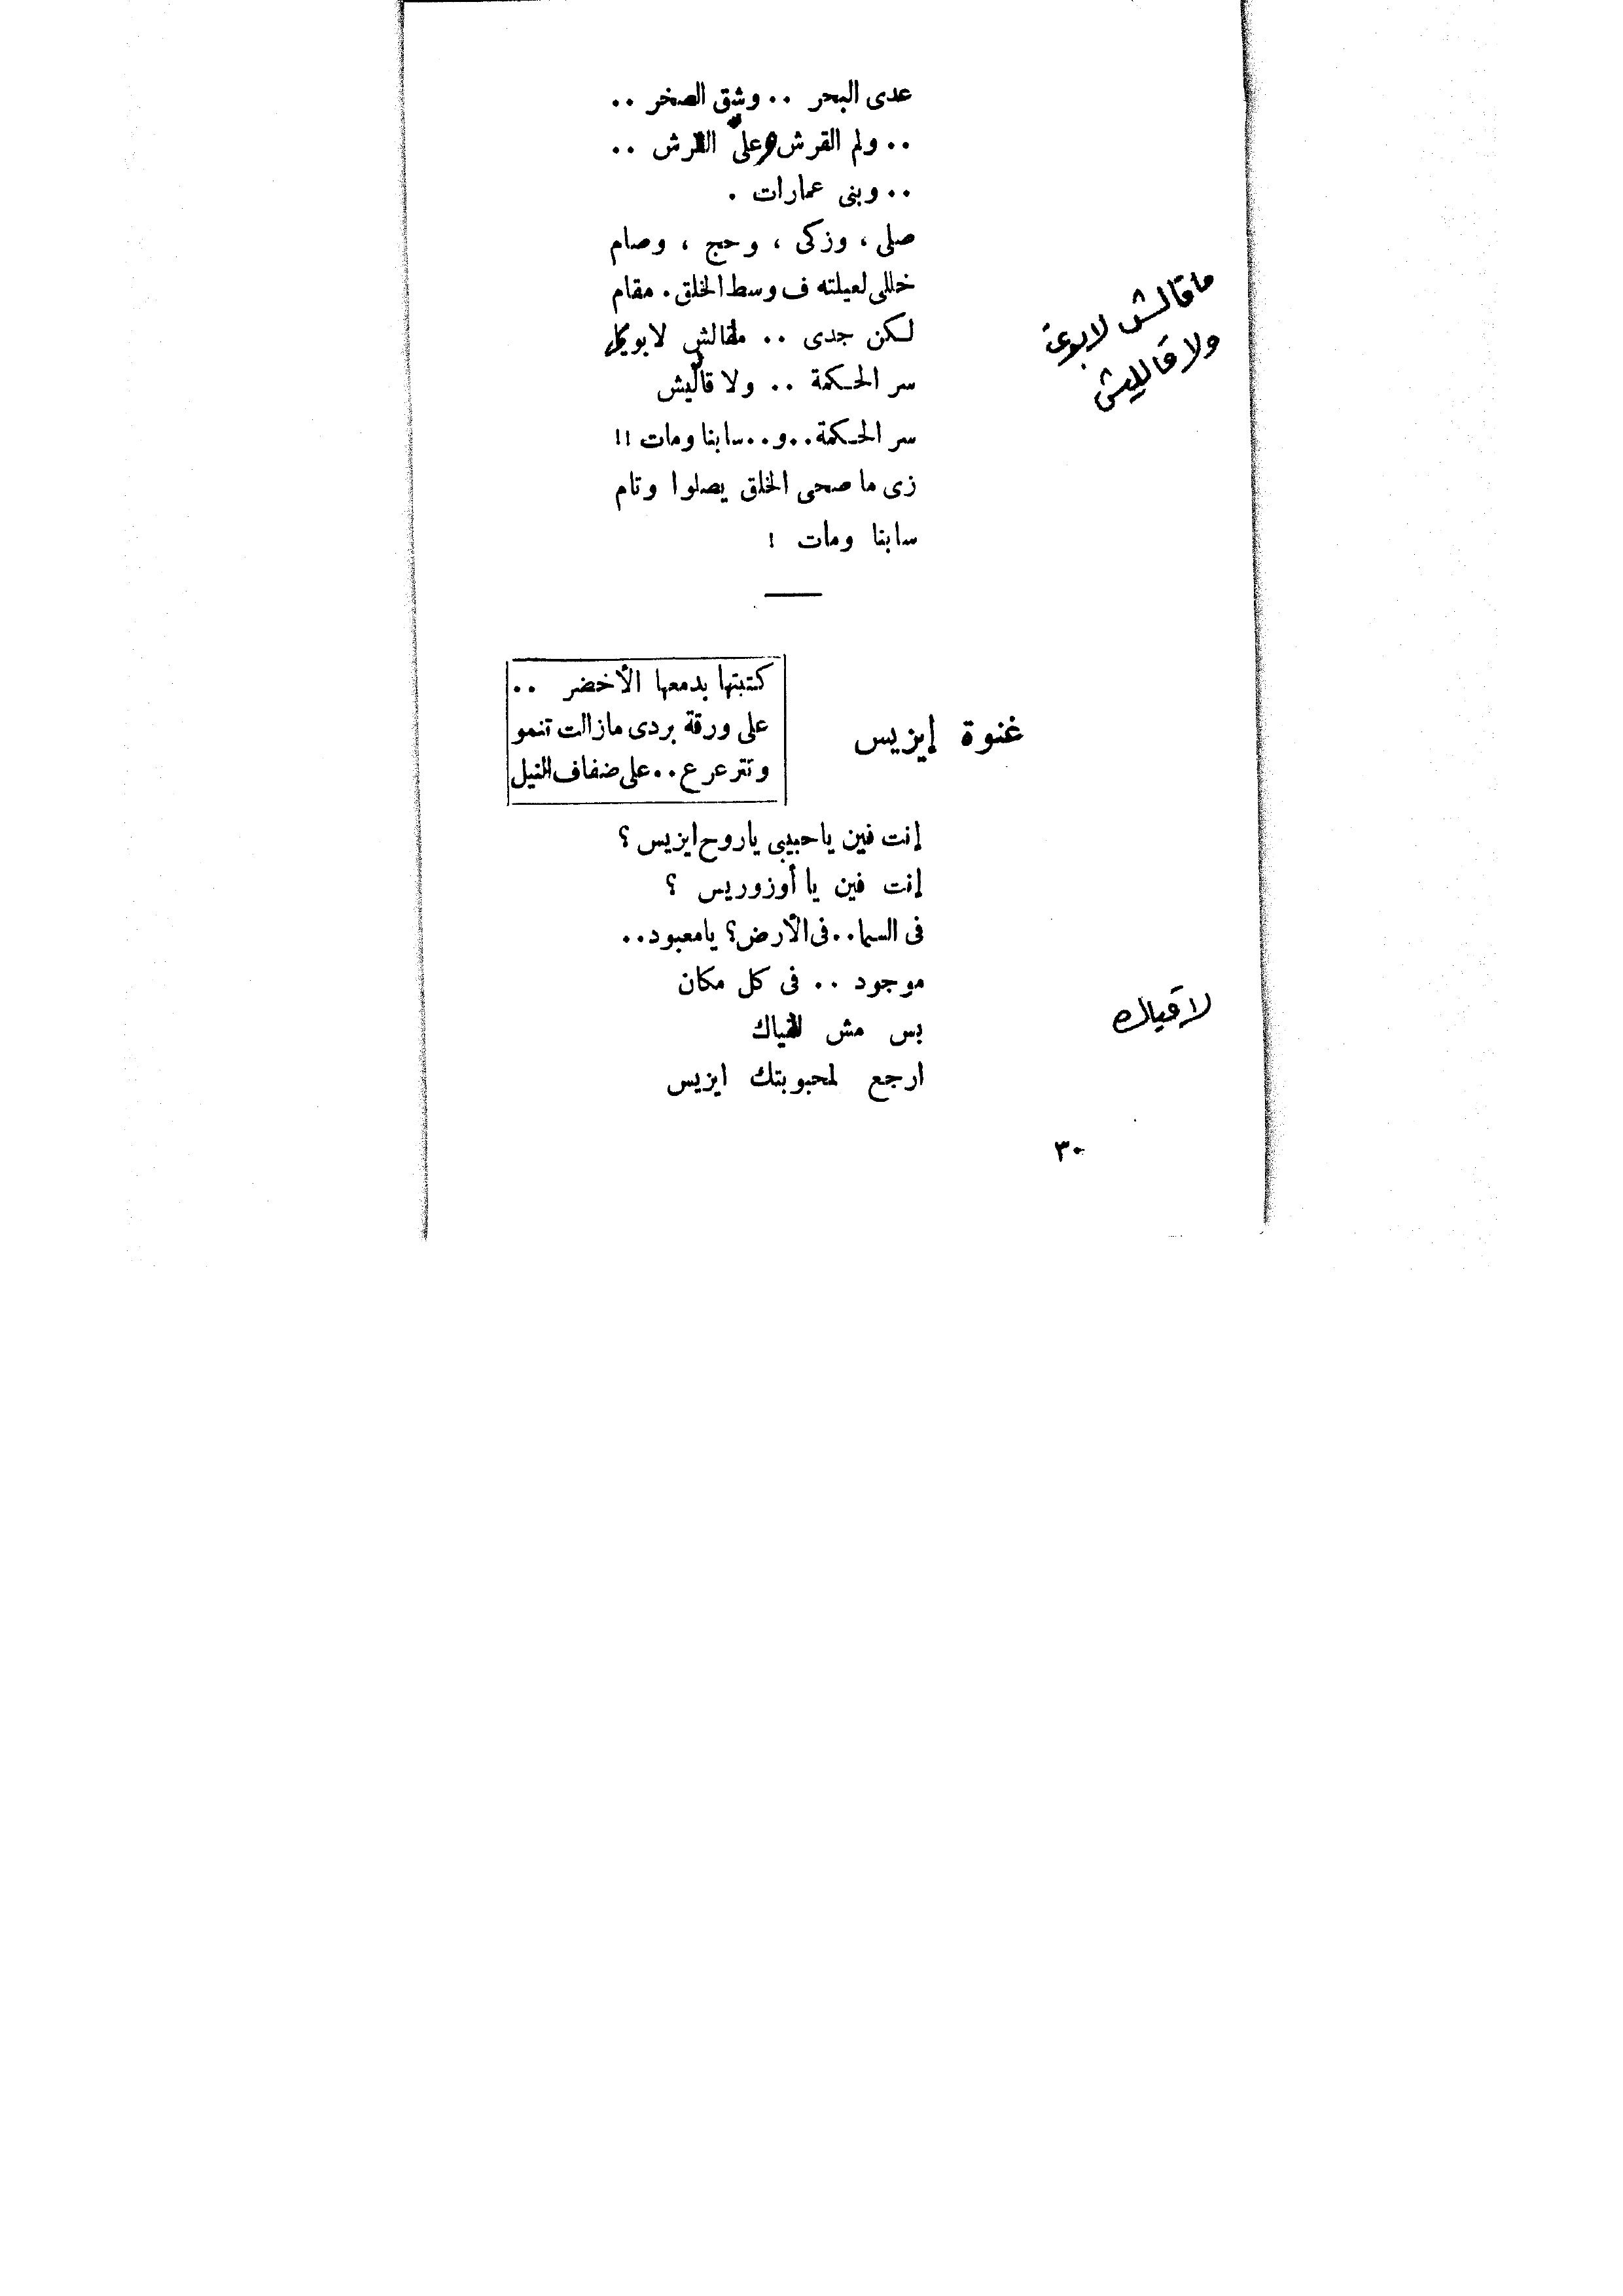 عدى البحر .. وشق الصخر ..
.. ولم القرش وعلى القرش ..
.. وبنى عمارات .
صلى ، وزكى ، وحج ، وصام
خللى لعيلته ف وسط الخلق . مقام
لكن جدى .. مقالش لابويا
سر الحكمة .. ولا قالليش
سر الحكمة .. و .. سابنا ومات !!
زى ما صحى الخلق يصلوا ونام
سابنا ومات !
ماقالش لابويا
ولا قالليش
غنوة إيزيس
كتبتها بدمعها الأخضر ..
على ورقة بردى مازالت تنمو
وتترعرع .. على ضفاف النيل
إنت فين ياحبيبى ياروح ايزيس ؟
إنت فين يا أوزوريس ؟
فى السما .. فى الأرض ؟ يامعبود ..
موجود .. فى كل مكان
بس مش
ارجع لمحبوبتك ايزيس
لاقياك
٣٠